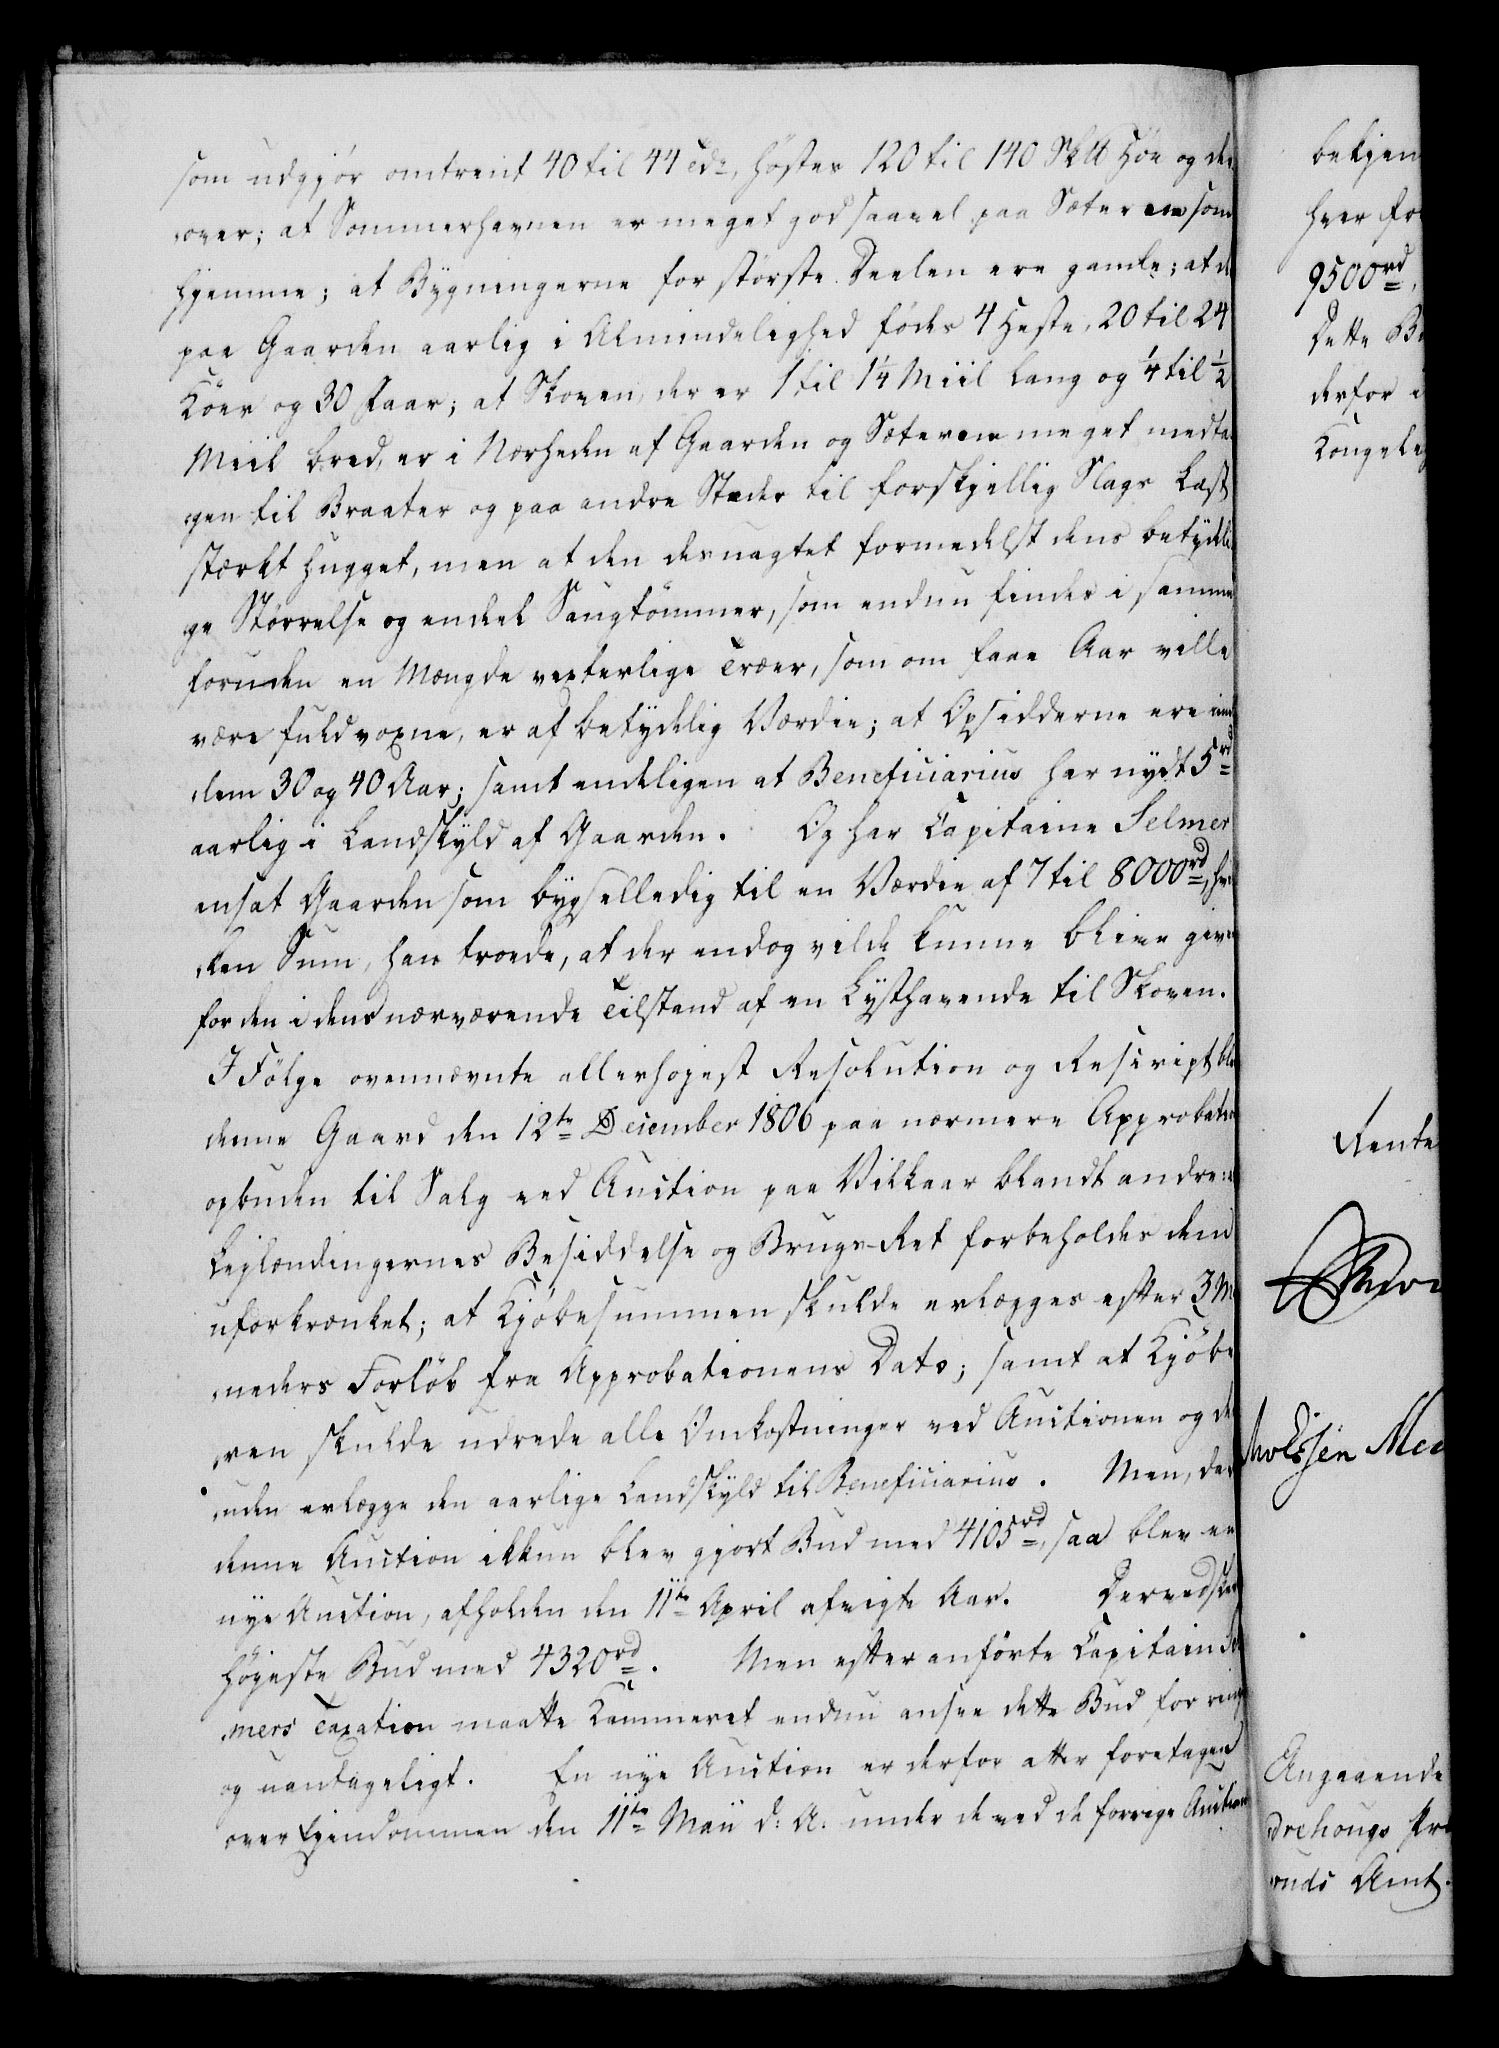 som udgjör omtrent 40 til 44 Tdr, höstes 120 til 140 Sk℔ Höe og der
over; at Sommerhavnen er meget god saavel paa Sæteren som
hjemme; at Bygningerne for störste Deelen ere gamle; at der
paa Gaarden aarlig i Almindelighed födes 4 Heste, 20 til 24
Köer og 30 Faar; at Skoven, der er 1 til 1¼ Miil lang og ¼ til ½
Miil bred, er i Nærheden af Gaarden og Sæteren meget medta
gen til Braater og paa andre Steder til forskjellig Slags Last
stærkt hugget, men at den desuagtet formedelst dens betydeli
ge Störrelse og endeel Saugtömmer, som endnu findes i samme
foruden en Mængde vexterlige Træer, som om faae Aar ville
være fuldvoxne, er af betydelig Værdie; at Opsidderne ere imel
lem 30 og 40 Aar; samt endeligen at Beneficiarius har nydt 5 rd
aarlig i Landskyld af Gaarden. Og har Capitaine Selmer
ansat Gaarden som bygselledig til en Værdie af 7 til 8000 rd, hvil
ken Sum, han troede, at der endog vilde kunne blive given
for den i dens nærværende Tilstand af en Lysthavende til Skoven.
I Fölge ovennævnte allerhöjest Resolution og Rescript blev
denne Gaard den 12te December 1806 paa nærmere Approbation
opbuden til Salg ved Auction paa Vilkaar blandt andre: at
Lejlændingernes Besiddelse og Brugs-Ret forbeholdes dem
uforkrænket; at Kjöbesummen skulde erlægges efter 3 Maa
neders Forlöb fra Approbationens Dato; samt at Kjöbe
ren skulde udrede alle Omkostninger ved Auctionen og des
uden erlægge den aarlige Landskyld til Beneficiarius. Men, da
denne Auction ikkun blev gjort Bud med 4105 rd, saa blev en
nye Auction, afholden den 11te April afvigte Aar. Derved skede
höjeste Bud med 4320 rd. Men efter anförte Capitain Sel
mers Taxation maatte Kammeret endnu ansee dette Bud for ringe
og uantageligt. En nye Auction er derfor atter foretagen
over Ejendommen den 11te Maii d: A: under de ved de forrige Auctioner
bekjen
hver for
9500 rd,
Dette B
derfor i
Kongelig
Rente
Angaaende
drehougs Præ
ruds Amt.